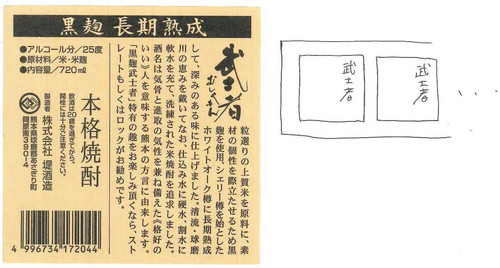 黒麹長期熟成
武士者
むしゃんよか
粒選りの上質米を原料に、素
材の個性を際立たせるため黒
麹を使用、シェリー樽を始めとした
ホワイトオーク樽に長期熟成
して、深みのある味に仕上げました。清流・球磨
川の恵みを戴いてなお、仕込み水に硬水、割水に
軟水を充て、洗練された米焼酎を追求しました。
酒名は気骨と進取の気性を兼ね備えた《格好の
いい》人を意味する熊本の方言に由来します。
「黒麹武士者」特有の趣をお楽しみ頂くなら、スト
レートもしくはロックがお勧めです。
●アルコール分/25度
●原材料/米・米麹
●内容量/720ml
本格焼酎
飲酒は20歳を過ぎてから。
開栓には十分ご注意ください。
製造者 株式会社 堤酒造
熊本県球磨郡あさぎり町
岡原南390-4
4 996734 172044
武士者
武士者